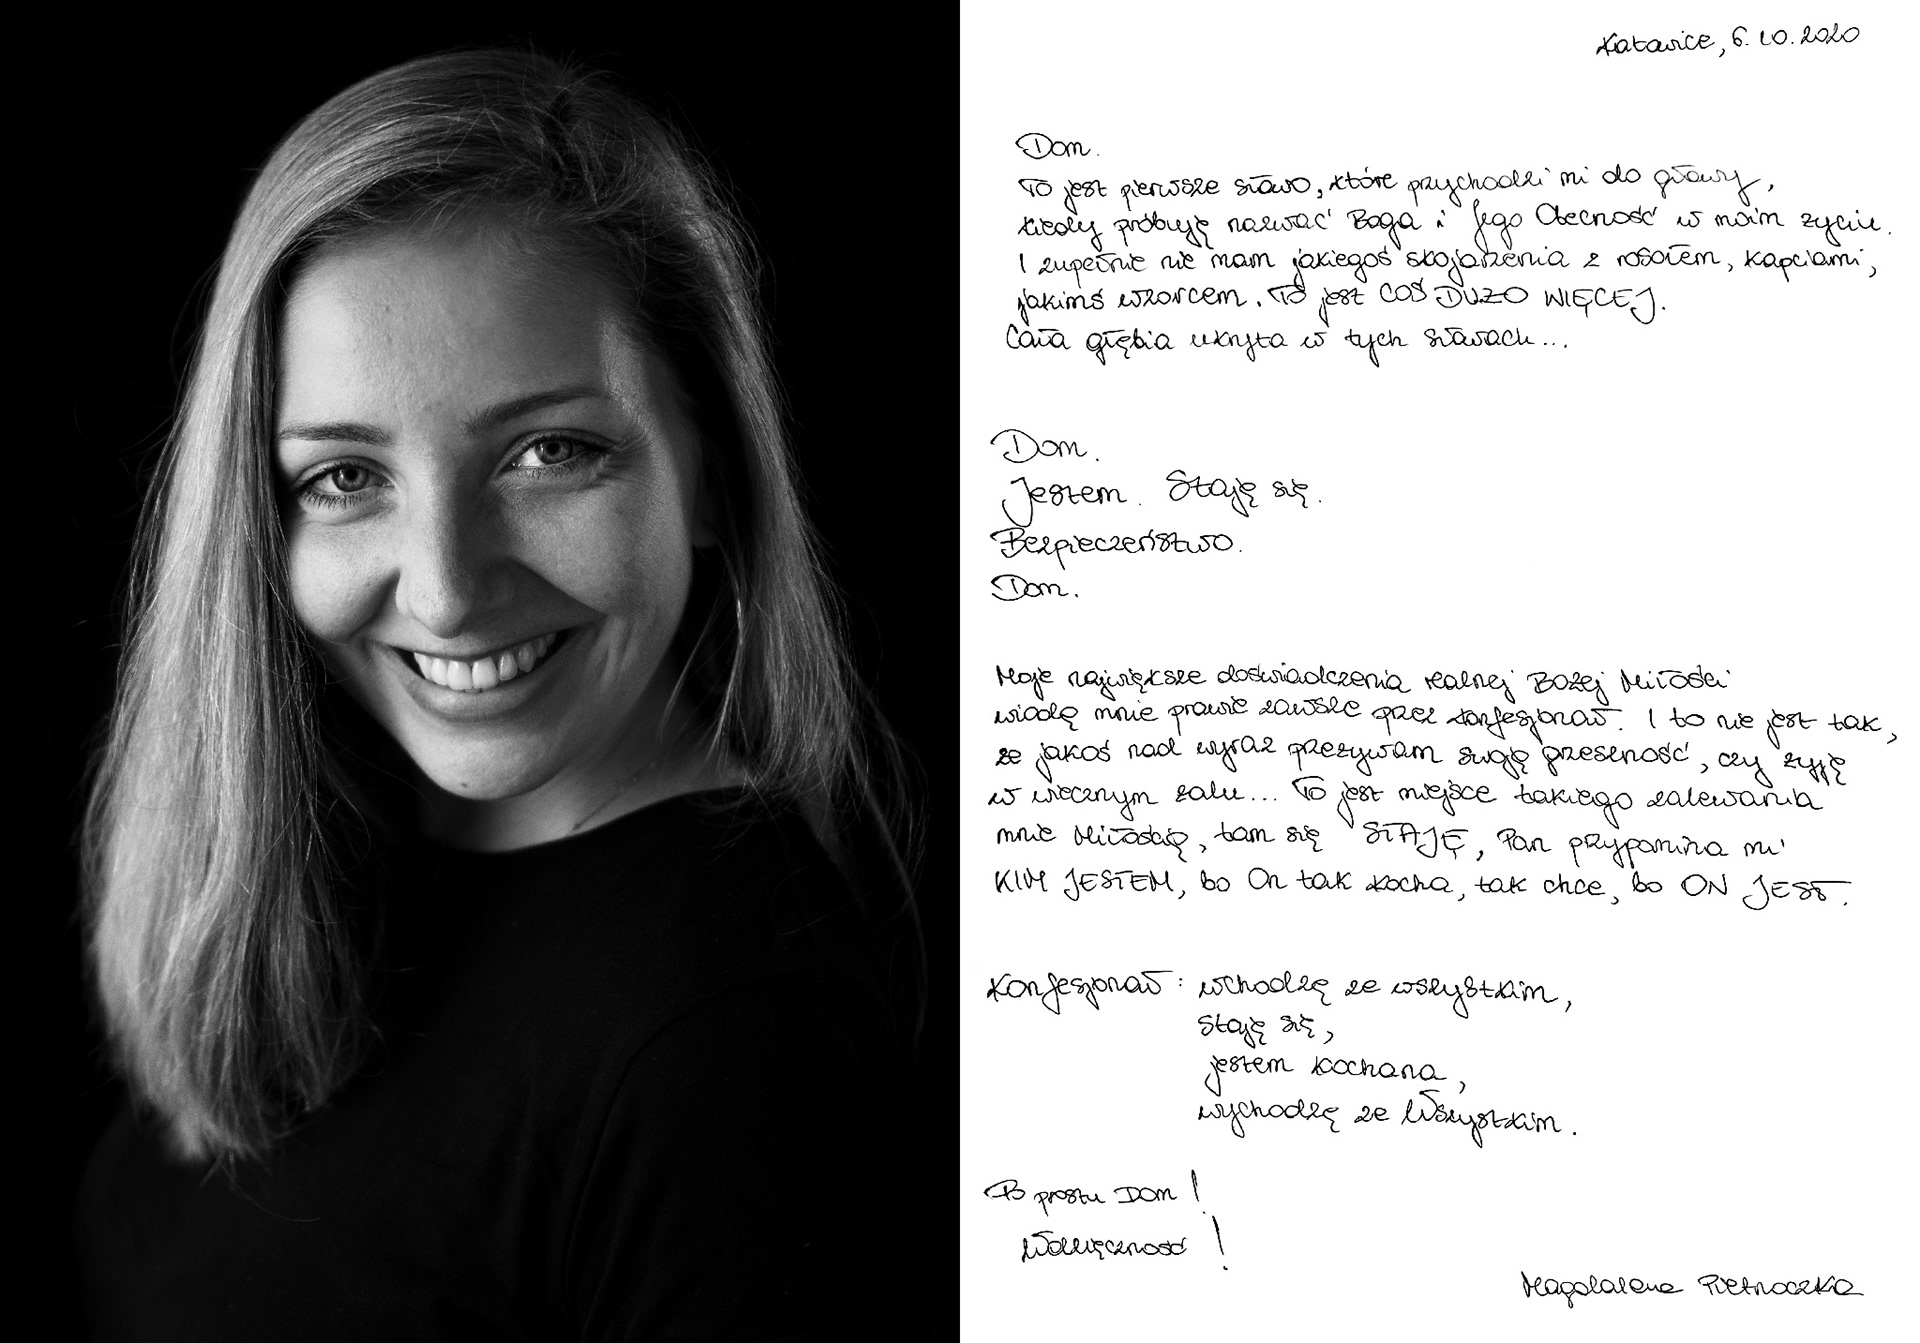 Katowice, 6.10.2020
Dom.
To jest pierwsze słowo, które przychodzi mi do głowy,
kiedy próbuję nazwać Boga i Jego Obecność w moim życiu.
I zupełnie nie mam jakiegoś skojarzenia z rosołem, kapciami,
jakimś wzorcem. To jest COŚ DUŻO WIĘCEJ.
Cała głębia ukryta w tych słowach...
Dom.
Jestem. Staję się.
Bezpieczeństwo.
Dom.
Moje największe doświadczenia realnej Bożej Miłości
wiodą mnie prawie zawsze przez konfesjonał. I to nie jest tak,
że jakoś nad wyraz przeżywam swoją przeszłość, czy żyję
w wiecznym żalu... To jest miejsce takiego zalewania
mnie Miłością, tam się STAJĘ, Pan przypomina mi
KIM JESTEM, bo On tak kocha, tak chce, bo ON JEST.
Konfesjonał: wchodzę ze wszystkim,
staję się,
jestem kochana,
wychodzę ze Wszystkim.
Po prostu Dom!
Wdzięczność!
Magdalena Pietroczka